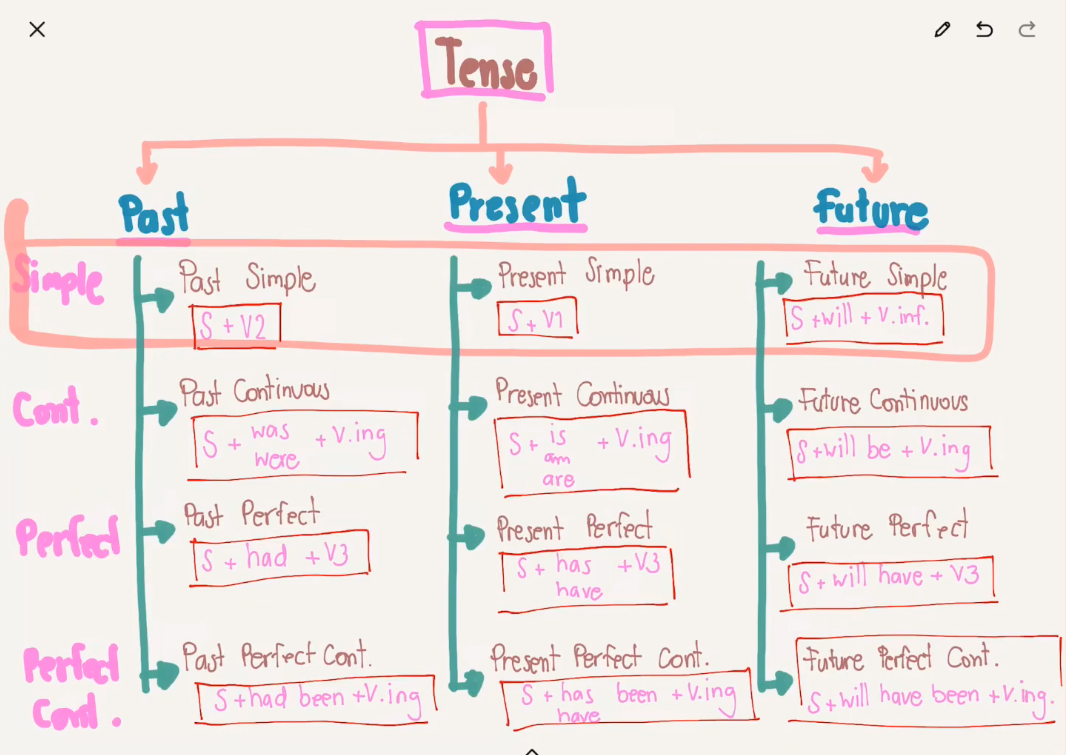 Tense
Past
Present
Future
Simple
Past Simple
S + V2
Present Simple
S + V1
Future Simple
S +will + V.inf.
Cont.
Past Continuous
S + was + V.ing
were
Present Continuous
S + is + V.ing
am
are
Future Continuous
S +will be + V.ing
Perfect
Past Perfect
S + had + V3
Present Perfect
S + has + V3
have
Future Perfect
S + will have + V3
Perfect
Cont.
Past Perfect Cont.
S +had been +V.ing
Present Perfect Cont.
S + has been + V.ing
have
Future Perfect Cont.
S +will have been +V.ing.